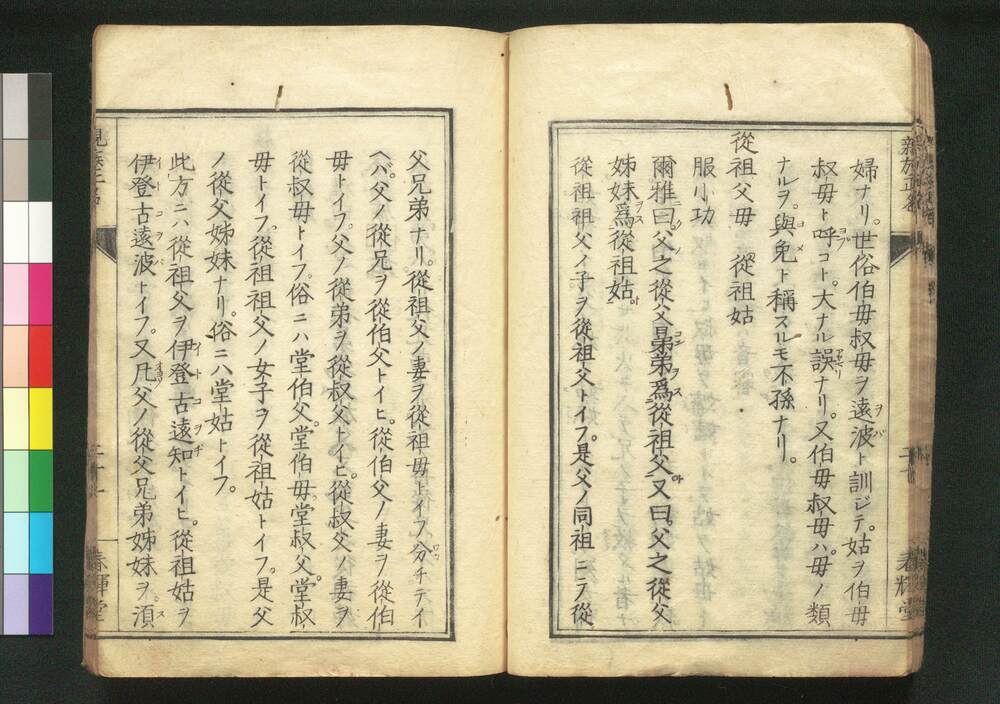 婦ナリ。世俗伯毋叔毋ヲ遠波ト訓ジテ。姑ヲ伯毋
叔毋ト呼コト。大ナル誤ナリ。又伯毋叔毋ハ。毋ノ類
ナルヲ。與免ト稱スルモ不孫ナリ。
從祖父毋 從祖姑
服小功
爾雅曰。父之從父晜弟爲從祖父。又曰。父之從父
姊妹爲從祖姑。
從祖祖父ノ子ヲ從祖父トイフ。是父ノ同祖ニテ從
父兄弟ナリ。從祖父ノ妻ヲ從祖毋トイフ。分チテイ
ヘバ。父ノ從兄ヲ從伯父トイヒ。從伯父ノ妻ヲ從伯
毋トイフ。父ノ從弟ヲ從叔父トイヒ。從叔父ノ妻ヲ
從叔毋トイフ。俗ニハ堂伯父。堂伯毋。堂叔父。堂叔
毋トイフ。從祖祖父ノ女子ヲ從祖姑トイフ。是父
ノ從父姊妹ナリ。俗ニハ堂姑トイフ。
此方ニハ從祖父ヲ伊登古遠知トイヒ。從祖姑ヲ
伊登古遠波トイフ。又凡父ノ從父兄弟姊妹ヲ。須
二十一
春輝堂